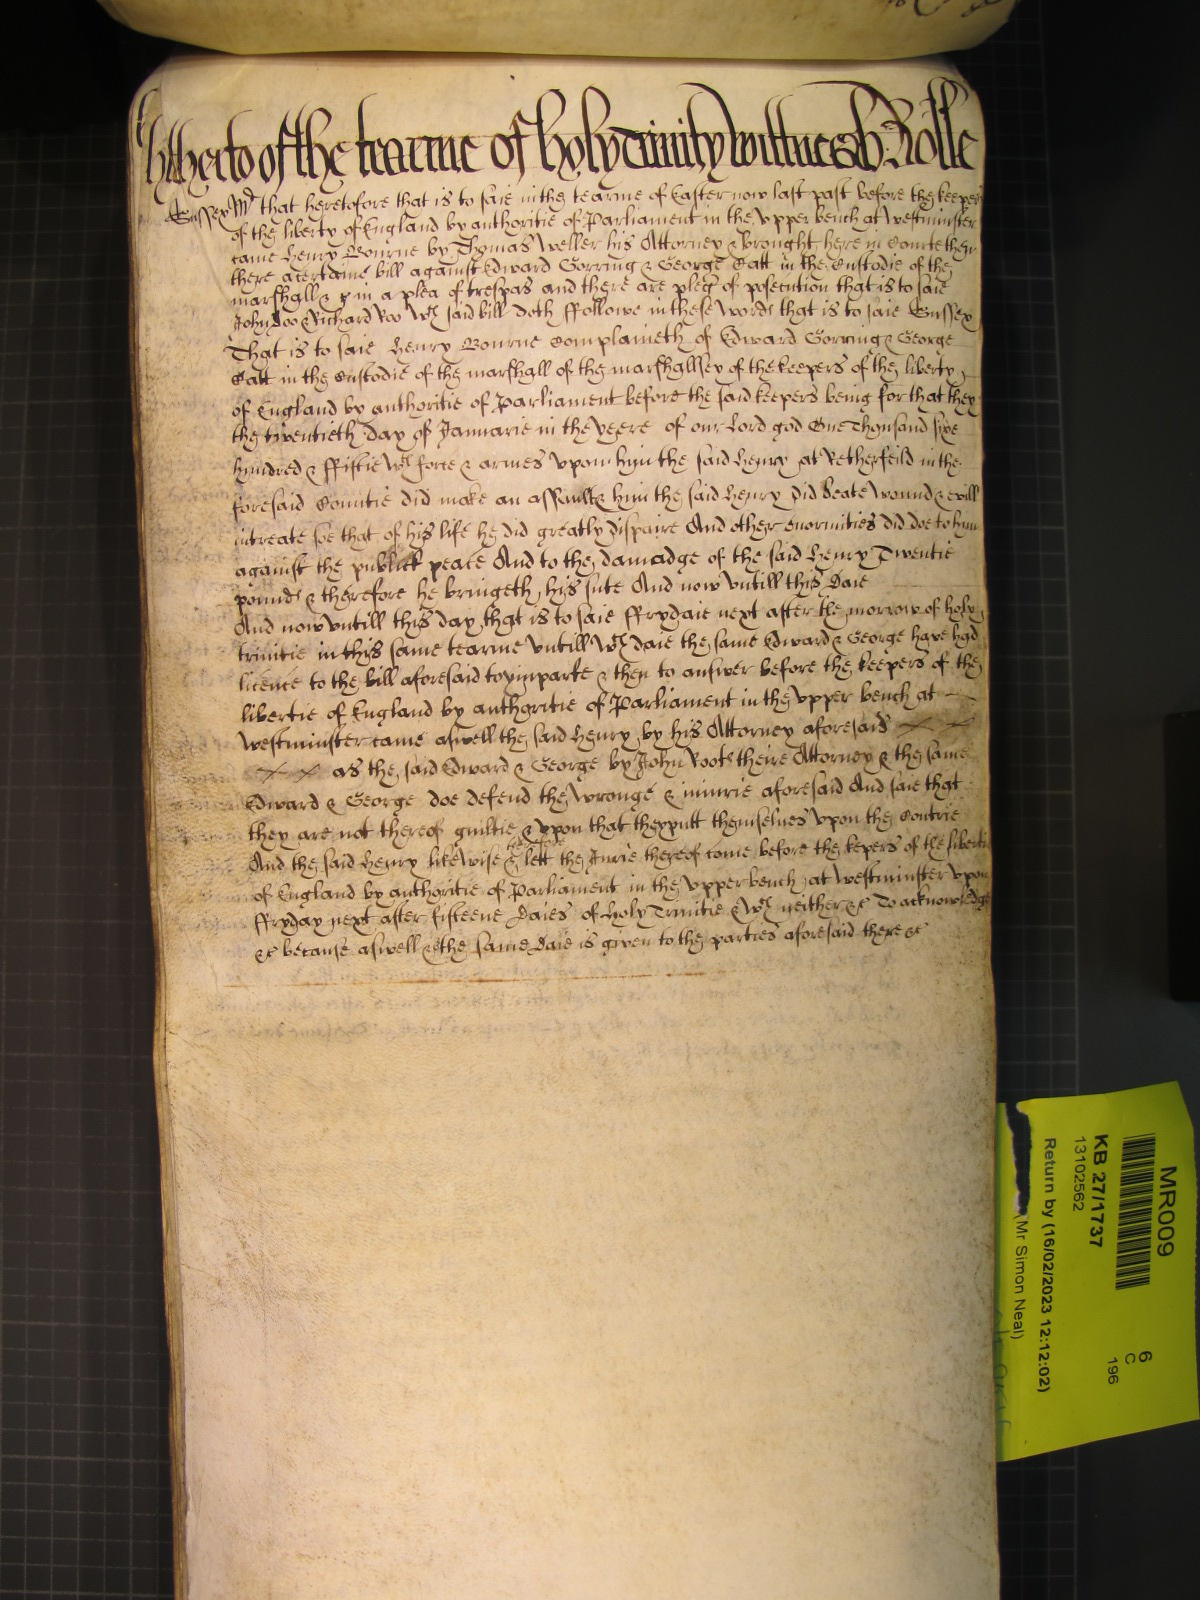 hitherto of the tearme of holy trinity wittnesseth Rolle
Sussex Md that heretofore that is to saie in the tearme of Easter now last past before the keepers
of the liberty of England by authoritie of Parliament in the upper bench at Westminster
came Henry Bourne by Thomas Weller his Attorney & brought here in Courte then
there a certaine bill against Edward Gorring & George Catt in the Custodie of the
marshall & in a plea of trespas and there are pledg of prosecution that is to saie
John Doo & Richard Roo wch said bill doth ffollowe in these words that is to saie Sussex
That is to saie Henry Bourne Complaineth of Edward Gorring & George
Catt in the Custodie of the marshall of the marshallsey of the keepers of the liberty
of England by authoritie of Parliament before the said keepers being for that they
the twentieth day of Januarie in the yeere of our Lord god One Thousand sixe
hundred & ffiftie wth force & armes upon him the said Henry at Retherfeild in the
foresaid Countie did make an assault & him the said Henry did beate wound & evill
intreate soe that of his life he did greatly dispaire And other enormities did doe to him
against the publick peace And to the damadge of the said Henry Twentie
pounds & therefore he bringeth his sute And now untill this Daie
And now untill this day that is to saie ffrydaie next after the morrow of holy
trinitie in this same tearme untill wch daie the same Edward & George have had
licence to the bill aforesaid to ymparle & then to answer before the keepers of the
libertie of England by authoritie of Parliament in the upper bench at
Westminster came aswell the said Henry by his Attorney aforesaid
as the said Edward & George by John Roots theire Attorney & the same
Edward & George doe defend the wronge & iniurie aforesaid And saie that
they are not thereof guiltie & upon that they putt themselves upon the Contrie
And the said Henry likewise & lett the Jurie thereof come before the kepers of the liberti
of England by authoritie of Parliament in the upper bench at Westminster upon
ffryday next after fifteene Daies of Holy Trinitie & wch neither &c To acknowledge
&c because aswell &c the same Daie is given to the parties aforesaid there &c
MR009
KB 27/1737
13102562
Return by (16/02/2023 12:12:02)
(Mr Simon Neal)
6
C
196